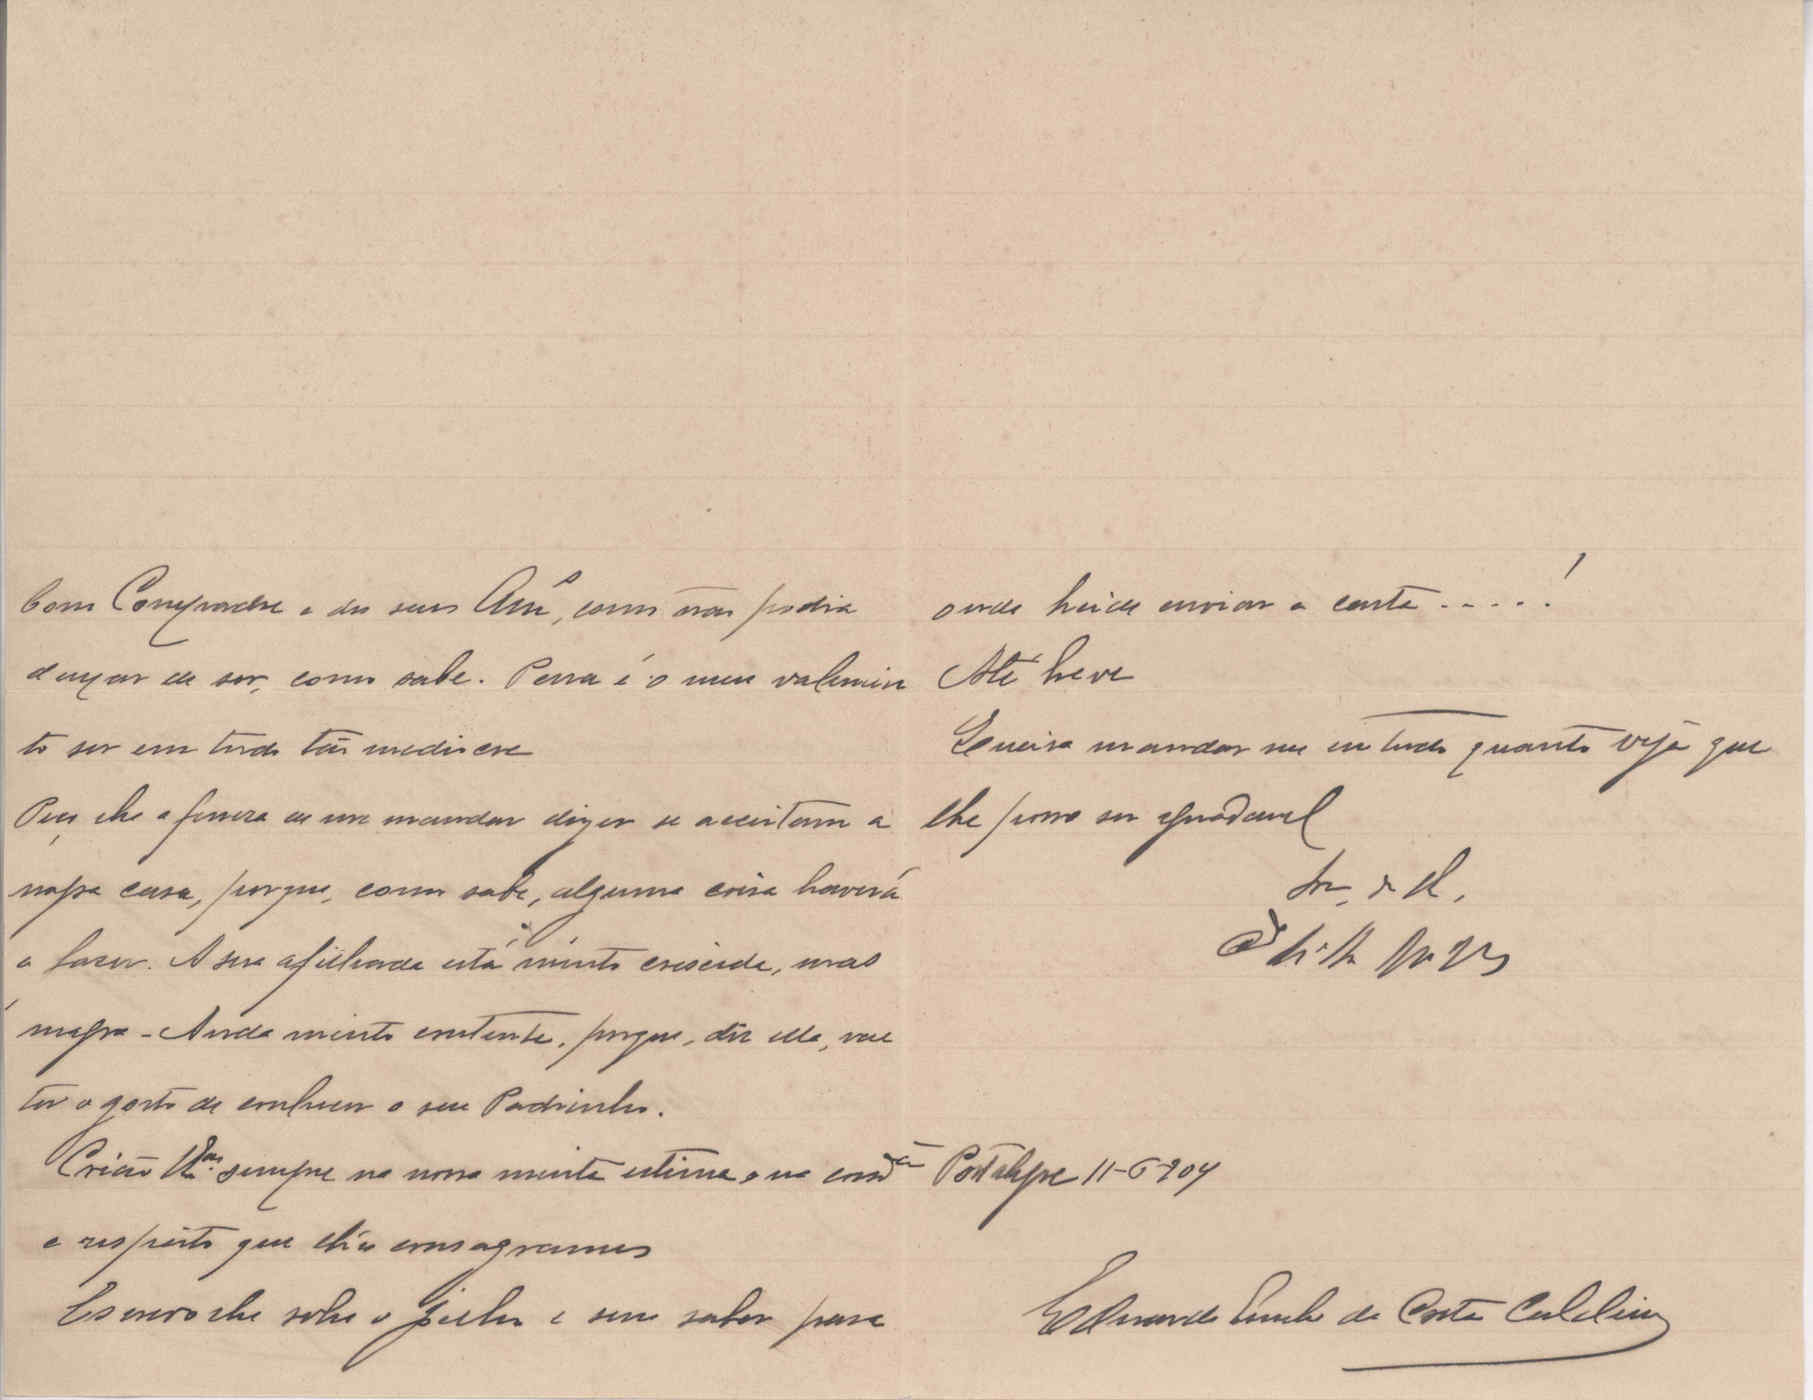 bom Compadre e dos seus Amº, como não podia
deixar de ser, como sabe. Pena é o meu valimen
to ser em tudo tão mediocre
Peço lhe a fineza de me mandar dizer se acceitam a
nossa casa, porque, como sabe, alguma coisa haverá
a fazer. A sua afilhada está muito crescida, mas
magra - Anda muito contente, porque, diz ella, vae
ter o gosto de conhecer o seu Padrinho.
sempre na nossa muita estima e na consid.ão
e respeito que lhes consagramos
Escrevo lhe sobre o joelho e sem saber para
onde heide enviar a carta.....!
Até breve
Queira mandar me em tudo quanto veja que
lhe posso ser agradavel
Portalegre 11-6-904
Eduardo da Costa